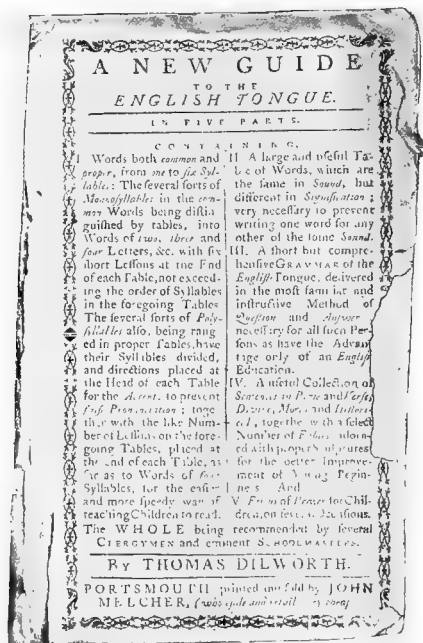 A NEW GUIDE
TO THE
ENGLISH TONGUE.
IN FIVE PARTS.
CONTAINING,
I Words both common and
proper, from one to six Syl-
lables: The several sorts of
Monosyllables in the com-
mon Words being distin
guished by tables, into
Words of two, three and
four Letters, &c. with six
short Lessons at the End
of each Table, not exceed-
ing the order of Syllables
in the foregoing Tables
The several sorts of Poly-
syllables also, being rang
ed in proper Tables, have
their Syllables divided,
and directions placed at
the Head of each Table
for the Accent, to prevent
false Pronunciation; toge
ther with the like Num-
ber of Lessons on the fore-
going Tables, placed at
the End of each Table, as
far as to Words of four
Syllables, for the easier
and more speedy way of
teaching Children to read.
II A large and useful Ta-
ble of Words, which are
the same in Sound, but
different in Signification;
very necessary to prevent
writing one word for any
other of the same Sound.
III. A short but compre-
hensive GRAMMAR of the
English Tongue, delivered
in the most familiar and
instructive Method of
Question and Answer
necessary for all such Per-
sons as have the Advan
tage only of an English
Education.
IV. A useful Collection of
Sentences in Prose and Verse,
Divine, Moral and Histori-
cal, together with a select
Number of Fables adorn-
ed with proper Sculptures
for the better Improve-
ment of Young Begin-
ners And
V. Forms of Prayer for Chil-
dren, on several Occasions.
The WHOLE being recommended by several
CLERGYMEN and eminent SCHOOLMASTERS.
By THOMAS DILWORTH.
PORTSMOUTH printed and sold by JOHN
MELCHER, (who sale and retail cheap